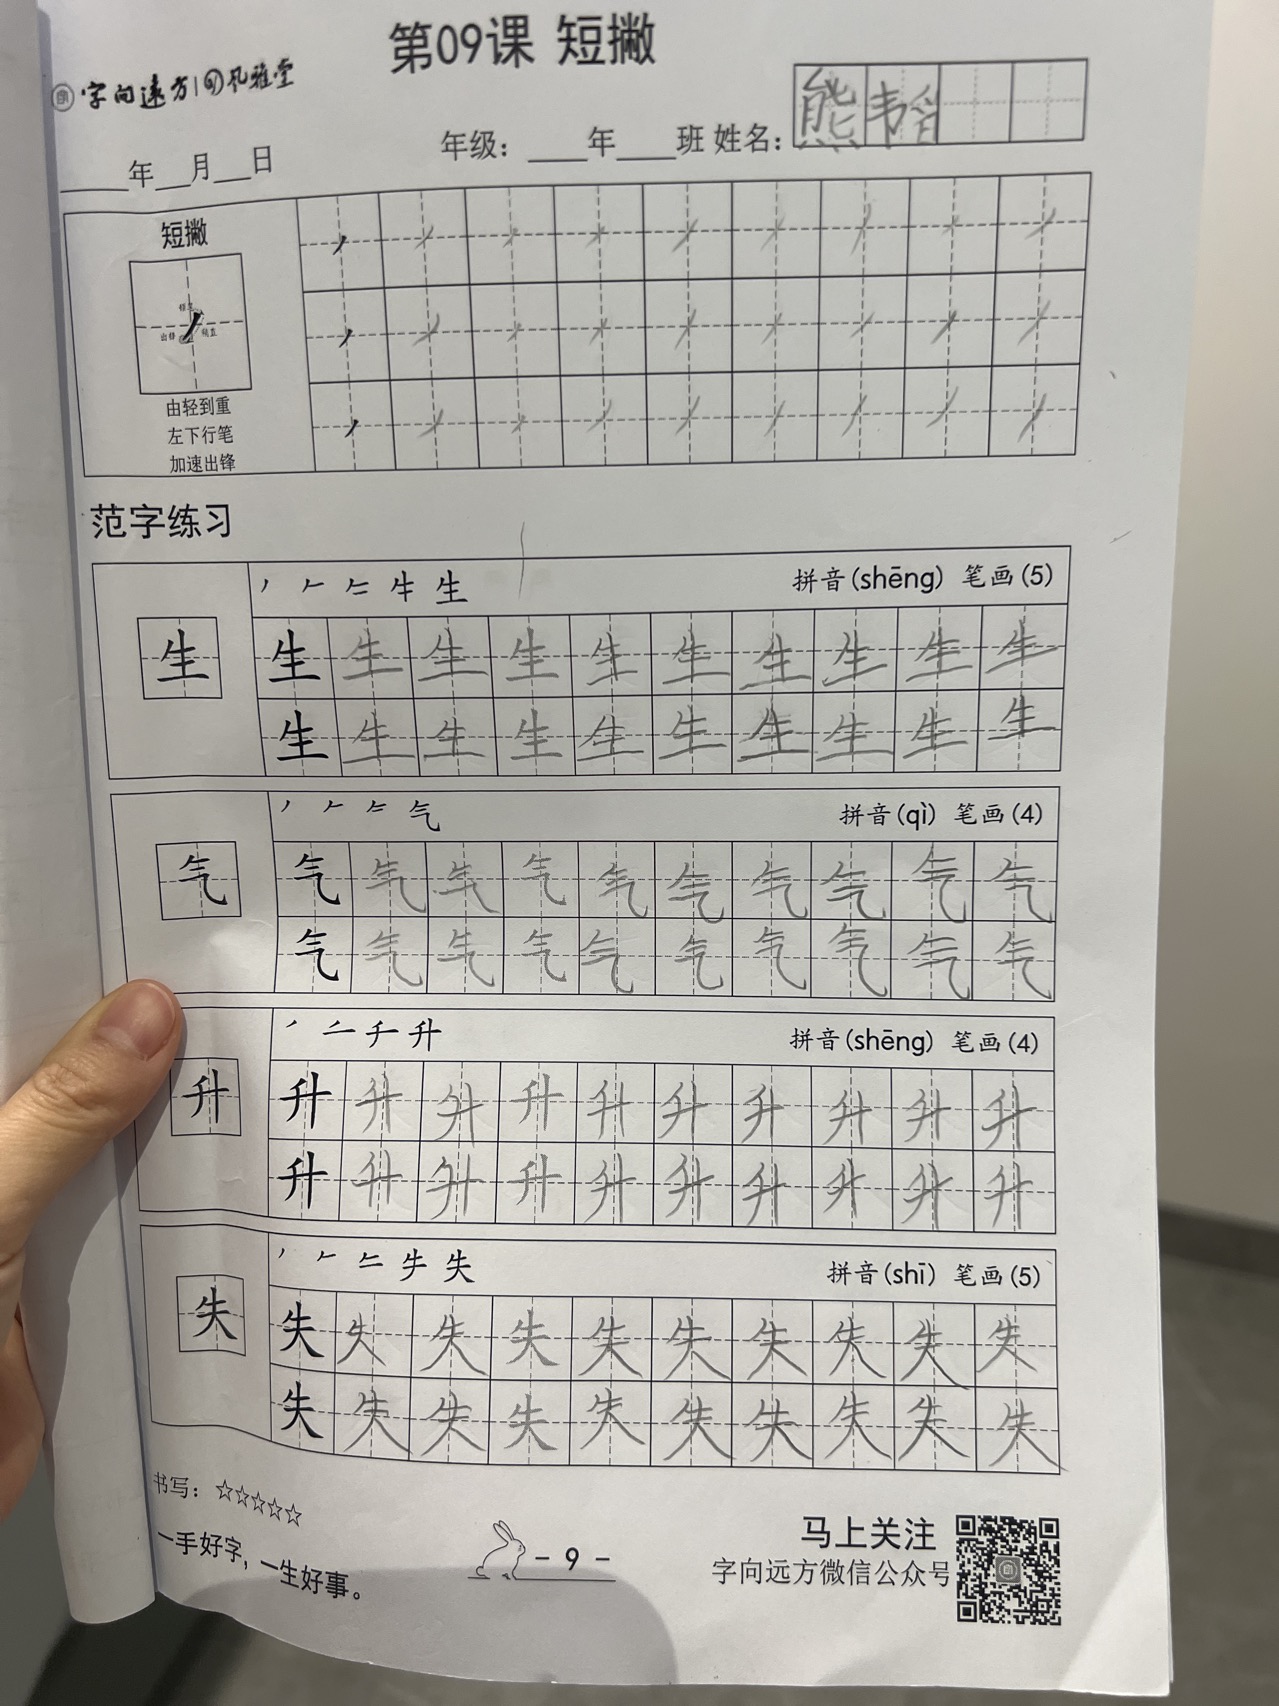 第09课 短撇
字向远方 孔雅堂
年级：____年____班 姓名：熊韬
____年__月__日
短撇
由轻到重
左下行笔
加速出锋
范字练习
生 拼音(shēng) 笔画(5)
生 生 生 生 生 生 生 生 生 生 生
生 生 生 生 生 生 生 生 生 生
气 拼音(qì) 笔画(4)
气 气 气 气 气 气 气 气 气 气 气
气 气 气 气 气 气 气 气 气 气
升 拼音(shēng) 笔画(4)
升 升 升 升 升 升 升 升 升 升 升
升 升 升 升 升 升 升 升 升 升
失 拼音(shī) 笔画(5)
失 失 失 失 失 失 失 失 失 失 失
失 失 失 失 失 失 失 失 失 失
书写：☆☆☆☆☆
一手好字，一生好事。
- 9 -
马上关注
字向远方微信公众号